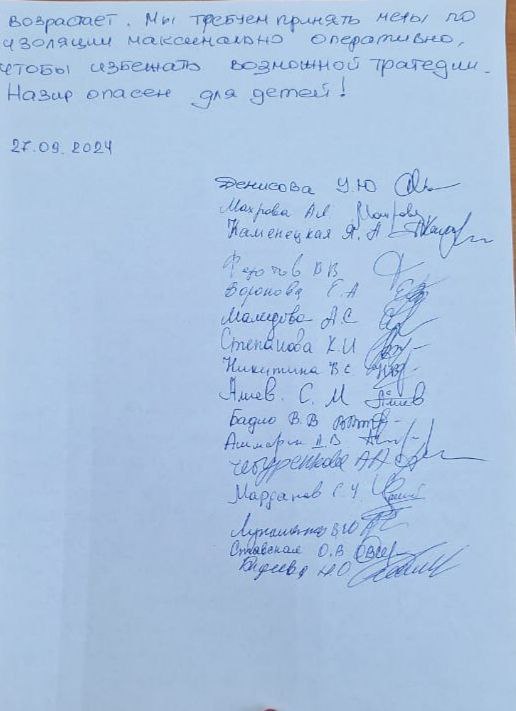 возрастает. Мы требуем принять меры по
изоляции максимально оперативно,
чтобы избежать возможной трагедии.
Назир опасен для детей!
27.09.2024
Денисова У.Ю
Махрова А.И. Махрова
Каменецкая Я. А
Федотов В В
Воронова Е.А
Мамедова А.С
Степанова К.И
Никитина В.С
Алиев. С. М Алиев
Бадио В.В
Ашмарин В.В
Чебуренкова А А
Марданов С.Ч.
Лукашенко В.Ю
Ставская О.В
Фадеева Н.О